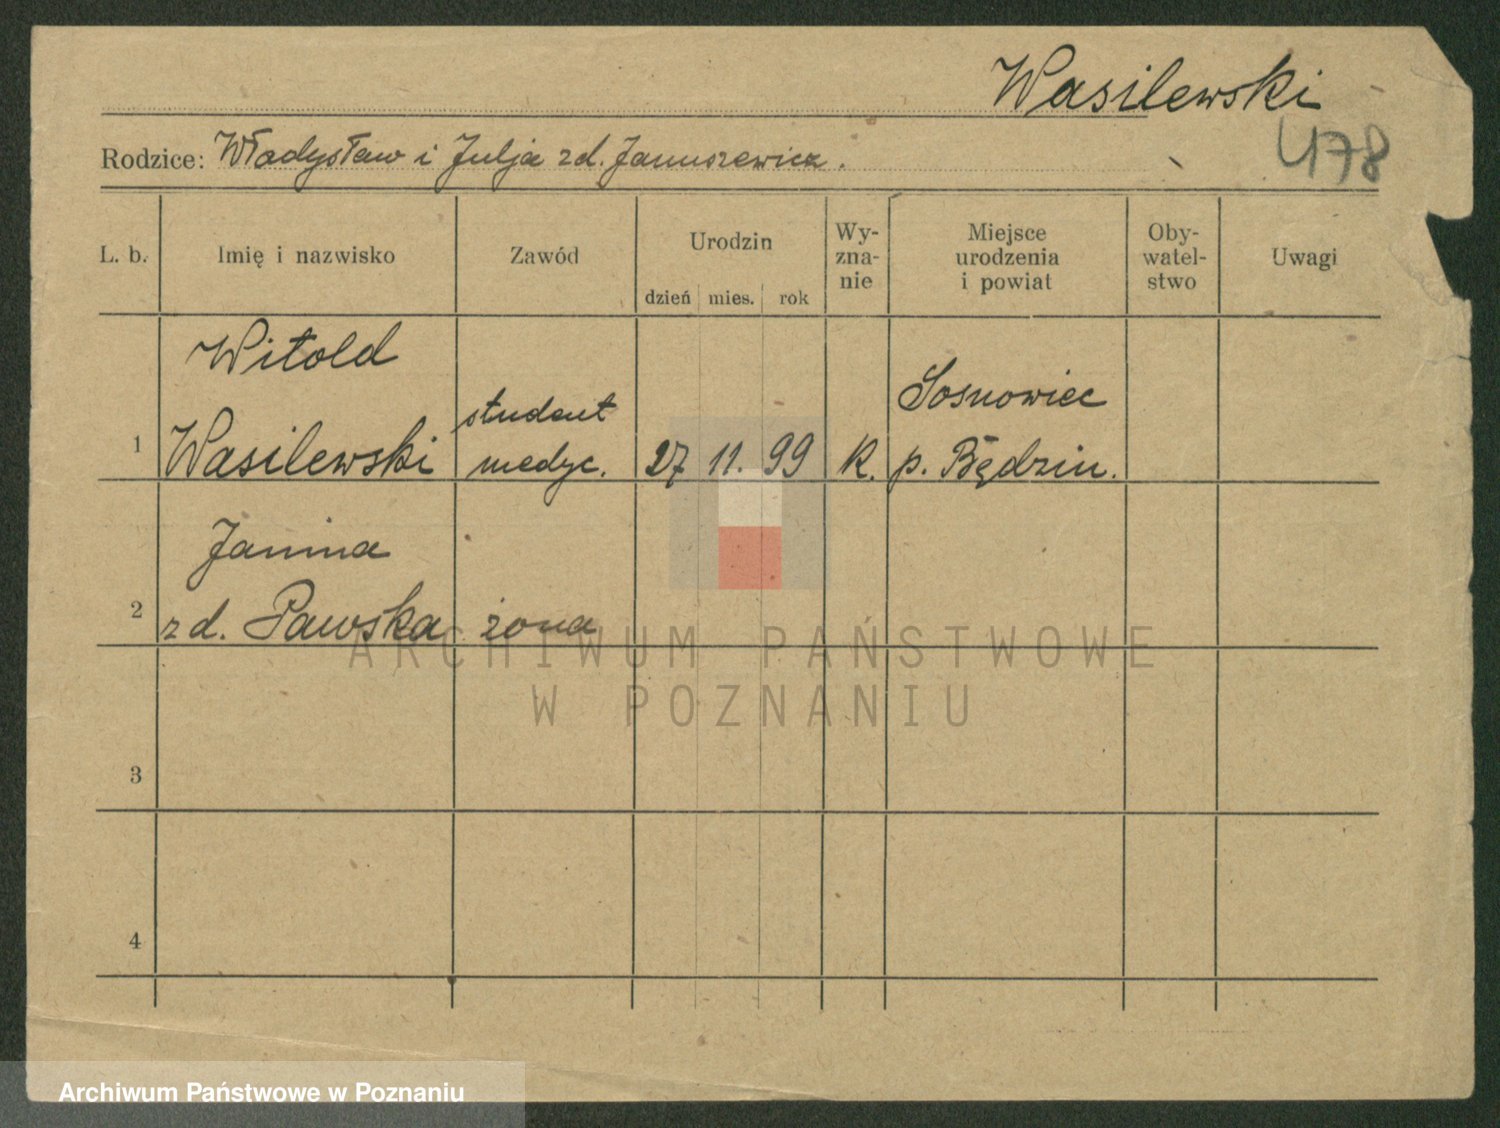 Wasilewski
478
Rodzice: Władysław i Julja zd. Januszewicz.
L. b.
Imię i nazwisko
Zawód
Urodzin
dzień mies. rok
Wy-
zna-
nie
Miejsce
urodzenia
i powiat
Oby-
watel-
stwo
Uwagi
Witold
student
Sosnowiec
1 Wasilewski medyc. 27 11. 99 K. p. Będzin.
Janina
2 zd. Pawska żona
ARCHIWUM PAŃSTWOWE
W POZNANIU
3
4
Archiwum Państwowe w Poznaniu